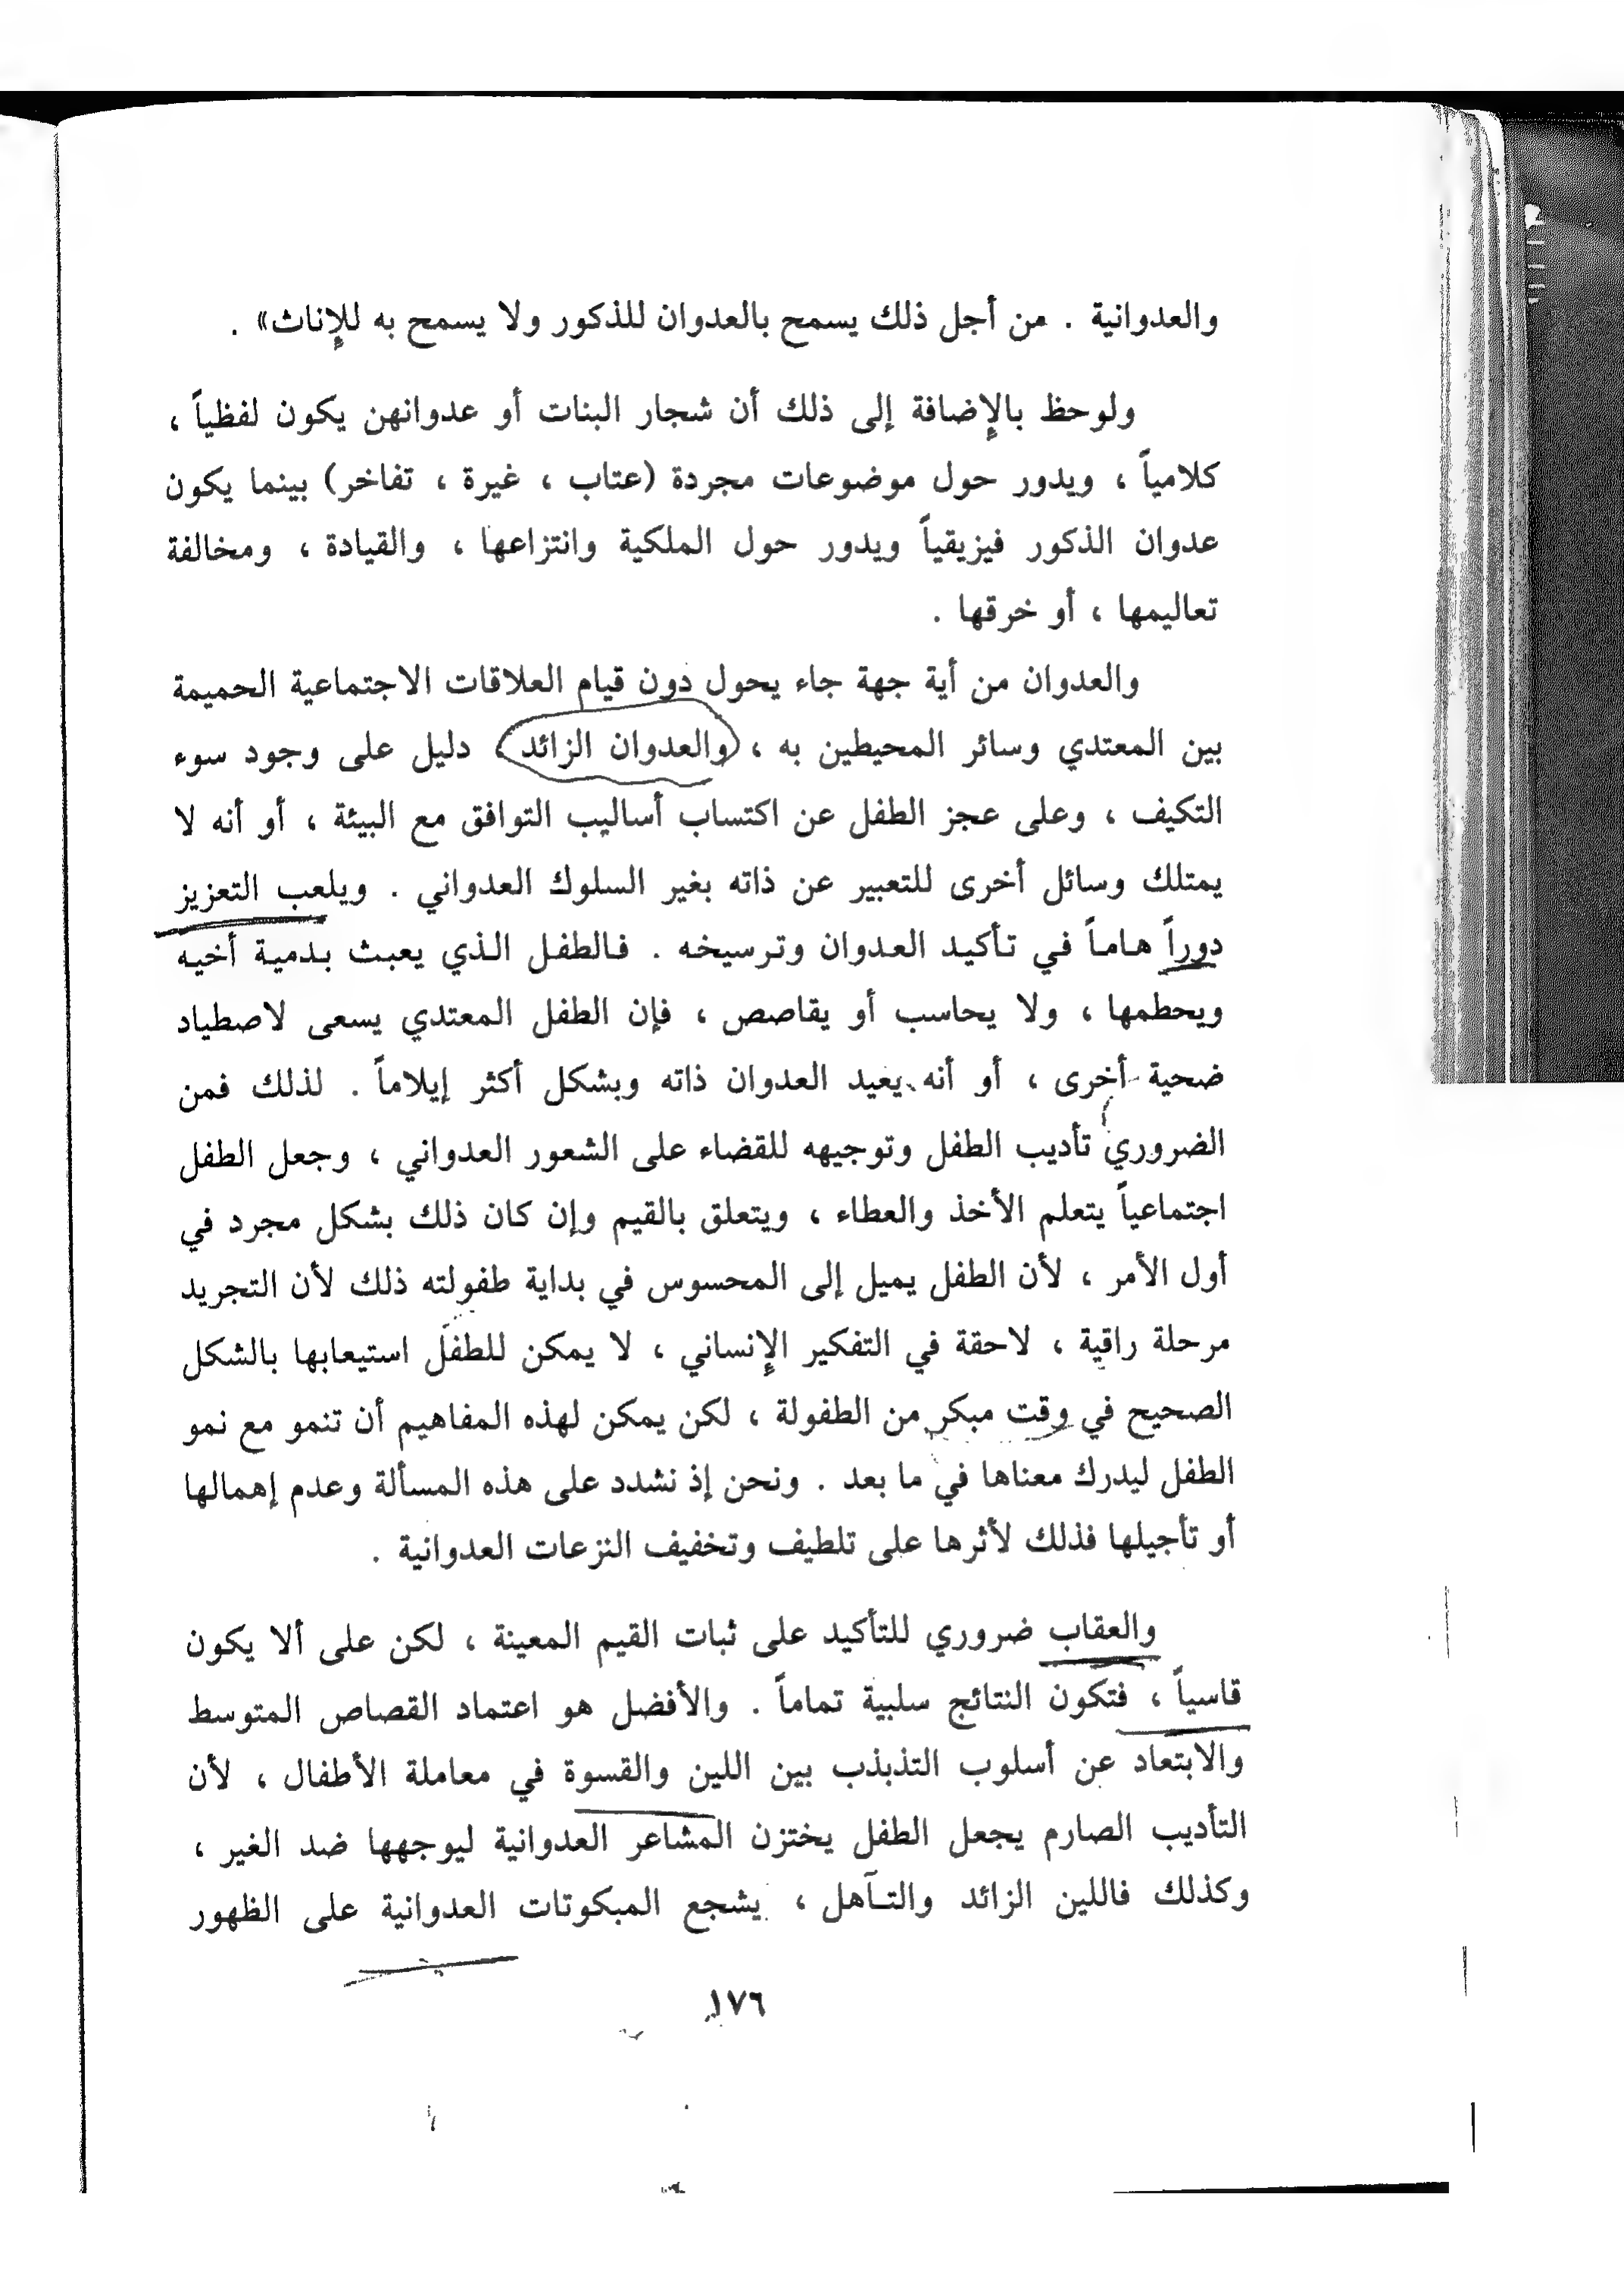 والعدوانية . من أجل ذلك يسمح بالعدوان للذكور ولا يسمح به للإناث» .
ولوحظ بالإضافة إلى ذلك أن شجار البنات أو عدوانهن يكون لفظياً ،
كلامياً ، ويدور حول موضوعات مجردة (عتاب ، غيرة ، تفاخر) بينما يكون
عدوان الذكور فيزيقياً ويدور حول الملكية وانتزاعها ، والقيادة ، ومخالفة
تعاليمها ، أو خرقها .
والعدوان من أية جهة جاء يحول دون قيام العلاقات الاجتماعية الحميمة
بين المعتدي وسائر المحيطين به ، والعدوان الزائد دليل على وجود سوء
التكيف ، وعلى عجز الطفل عن اكتساب أساليب التوافق مع البيئة ، أو أنه لا
يمتلك وسائل أخرى للتعبير عن ذاته بغير السلوك العدواني . ويلعب التعزيز
دوراً هاماً في تأكيد العدوان وترسيخه . فالطفل الذي يعبث بدمية أخيه
ويحطمها ، ولا يحاسب أو يقاصص ، فإن الطفل المعتدي يسعى لاصطياد
ضحية أخرى ، أو أنه يعيد العدوان ذاته وبشكل أكثر إيلاماً . لذلك فمن
الضروري تأديب الطفل وتوجيهه للقضاء على الشعور العدواني ، وجعل الطفل
اجتماعياً يتعلم الأخذ والعطاء ، ويتعلق بالقيم وإن كان ذلك بشكل مجرد في
أول الأمر ، لأن الطفل يميل إلى المحسوس في بداية طفولته ذلك لأن التجريد
مرحلة راقية ، لاحقة في التفكير الإنساني ، لا يمكن للطفل استيعابها بالشكل
الصحيح في وقت مبكر من الطفولة ، لكن يمكن لهذه المفاهيم أن تنمو مع نمو
الطفل ليدرك معناها في ما بعد . ونحن إذ نشدد على هذه المسألة وعدم إهمالها
أو تأجيلها فذلك لأثرها على تلطيف وتخفيف النزعات العدوانية .
والعقاب ضروري للتأكيد على ثبات القيم المعينة ، لكن على ألا يكون
قاسياً ، فتكون النتائج سلبية تماماً . والأفضل هو اعتماد القصاص المتوسط
والابتعاد عن أسلوب التذبذب بين اللين والقسوة في معاملة الأطفال ، لأن
التأديب الصارم يجعل الطفل يختزن المشاعر العدوانية ليوجهها ضد الغير ،
وكذلك فاللين الزائد والتـآهل ، يشجع المبكوتات العدوانية على الظهور
١٧٦